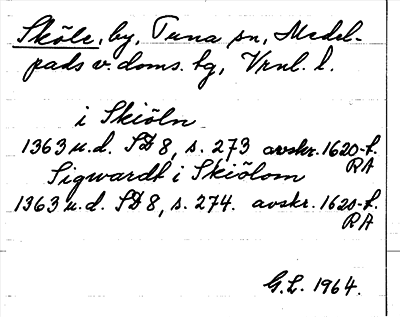 Sköle, by, Tuna sn, Medel-
pads v. doms. hg, Vrnl. l.
i Skiöln
1363 u.d. SD 8, s. 273 avskr. 1620-t.
RA
Sigwardh i Skiölom
1363 u.d. SD 8, s. 274. avskr. 1620-t.
RA
G.L. 1964.